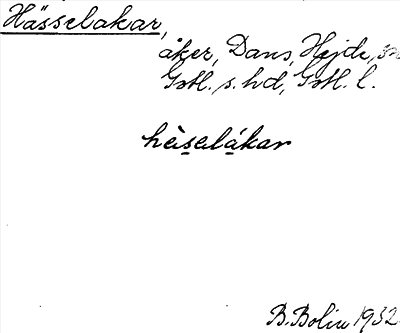 Hässelakar,
åker, Dans, Hejde, sn
Gotl. s. hd, Gotl. l.
hè̤i̤sa̤lákar
B. Bolin 1932